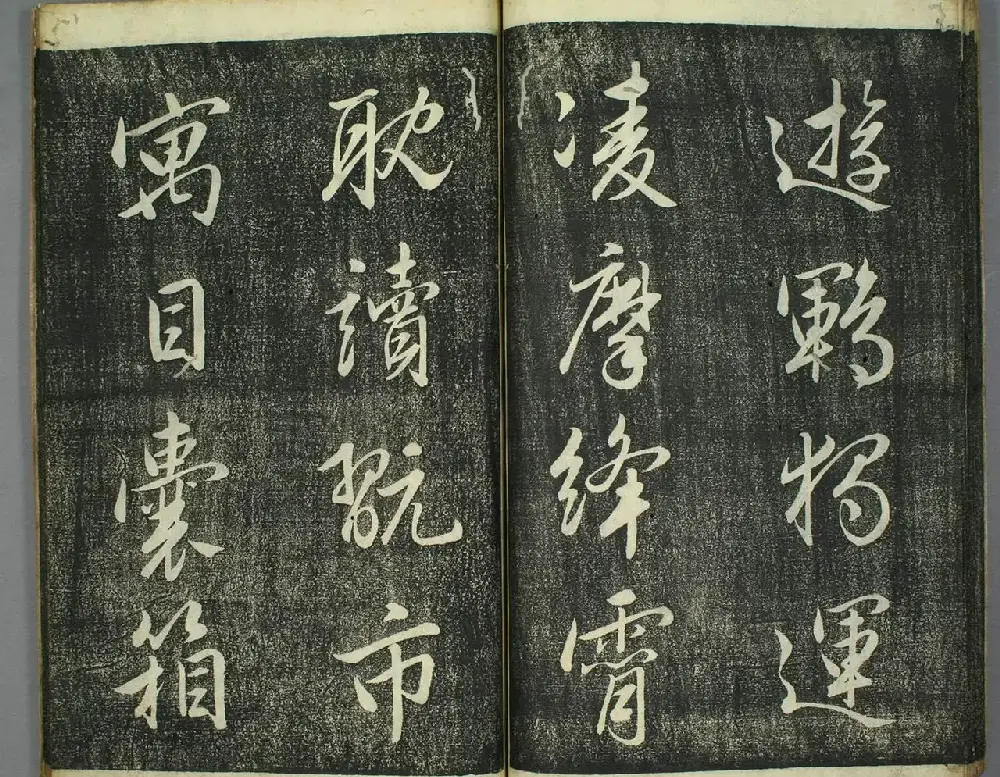 遊鶤獨運
凌摩絳霄
耽讀翫市
寓目囊箱